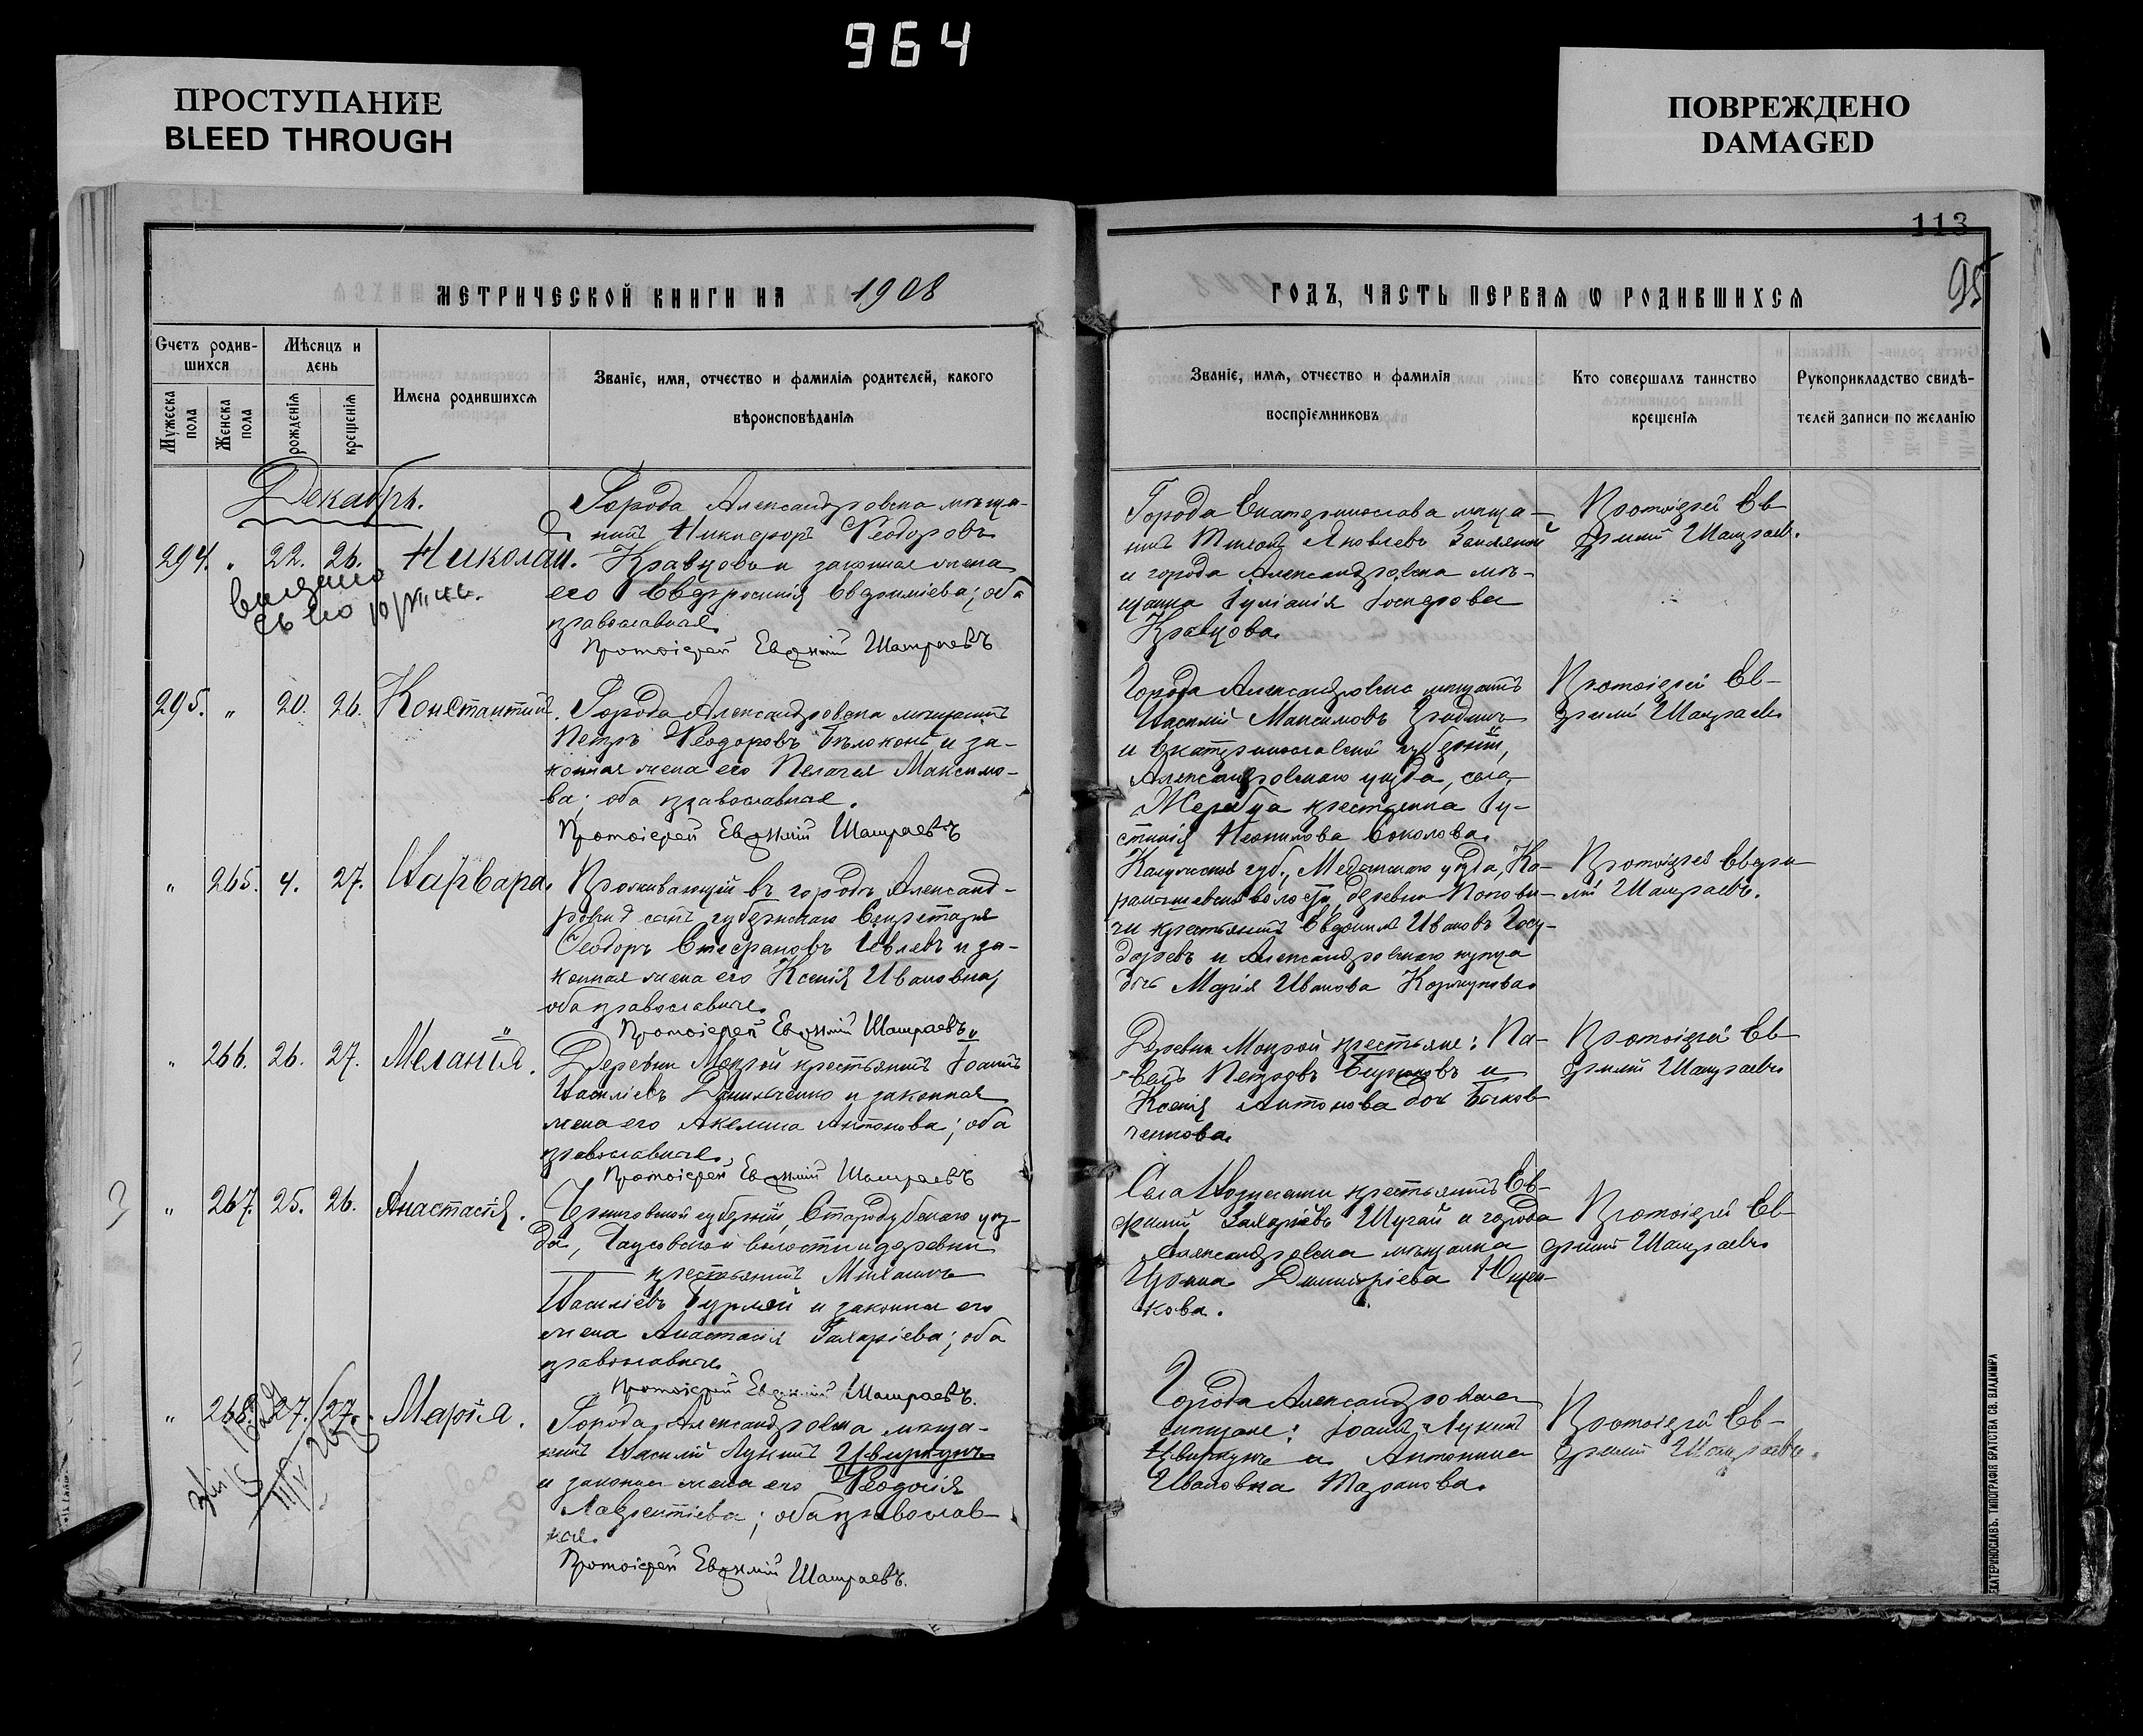 964
ПРОСТУПАНИЕ
BLEED THROUGH
ПОВРЕЖДЕНО
DAMAGED
113
95
МЕТРИЧЕСКОЙ КНИГИ НА 1908
ГОДЪ, ЧАСТЬ ПЕРВАЯ Ѡ РОДИВШИХСЯ
Счетъ родив-
шихся
Мѣсяцъ и
день
Мужеска
пола
Женска
пола
рожденія
крещенія
Имена родившихся
Званіе, имя, отчество и фамилія родителей, какого
вѣроисповѣданія
Званіе, имя, отчество и фамилія
воспріемниковъ
Кто совершалъ таинство
крещенія
Рукоприкладство свидѣ-
телей записи по желанію
Декабрь.
294. " 22. 26. Николай.
Города Александровска мѣща-
нинъ Никифоръ Ѳеодоровъ
Кравцовъ и законная жена
его Евфросинія Евфиміева; оба
православные.
Протоіерей Евфимій
Города Екатеринослава мѣща-
нинъ Тихонъ Яковлевъ
и города Александровска мѣ-
щанка Іуліанія Іосифова
Кравцова.
Протоіерей Ев-
фимій
295. " 20. 26. Константинъ.
Города Александровска мѣщанинъ
Петръ Ѳеодоровъ Бѣлоконь и за-
конная жена его Пелагея Максимо-
ва; оба православные.
Протоіерей Евфимій
Города Александровска мѣщанинъ
Василій Максимовъ
и Екатеринославской губерніи,
Александровскаго уѣзда, села
Жеребца крестьянка Іу-
стинія Соколова.
Протоіерей Ев-
фимій
" 265. 4. 27. Варвара.
Проживающій въ городѣ Александ-
ровскѣ сынъ губернскаго Секретаря
Ѳеодоръ Стефановъ Ивлевъ и за-
конная жена его Ксенія Ивановна,
оба православные.
Протоіерей Евфимій
Калужской губ., Медынскаго уѣзда,
волости, деревни
крестьянинъ Евдокимъ Ивановъ Госу-
даревъ и Александровскаго купца
дочь Марія Иванова Коршунова.
Протоіерей Евфи-
мій
" 266. 26. 27. Меланія.
Деревни Мокрой крестьянинъ Іоаннъ
Василіевъ Данильченко и законная
жена его Акелина Антонова; оба
православные.
Протоіерей Евфимій
Деревни Мокрой крестьяне: Па-
велъ Петровъ Бирюковъ и
Ксенія Антонова дочь
Протоіерей Ев-
фимій
" 267. 25. 26. Анастасія.
Черниговской губерніи, Стародубскаго уѣз-
да, волости и деревни
крестьянинъ Михаилъ
Василіевъ и законная его
жена Анастасія Захаріева; оба
православные.
Протоіерей Евфимій
Села Вознесенки крестьянинъ Ев-
фимій Захаріевъ Шугай и города
Александровска мѣщанка
Ирина Димитріева Ющен-
кова.
Протоіерей Ев-
фимій
" 268. 27. 27. Марія.
Города Александровска мѣща-
нинъ Василій Лукинъ Цвиркунъ
и законная жена его Ѳеодосія
Лаврентіева; оба православ-
ные.
Протоіерей Евфимій
Города Александровска
мѣщане: Іоаннъ Лукинъ
Цвиркунъ и Антонина
Ивановна Таранова.
Протоіерей Ев-
фимій
ЕКАТЕРИНОСЛАВЪ. ТИПОГРАФІЯ БРАТСТВА СВ. ВЛАДИМІРА